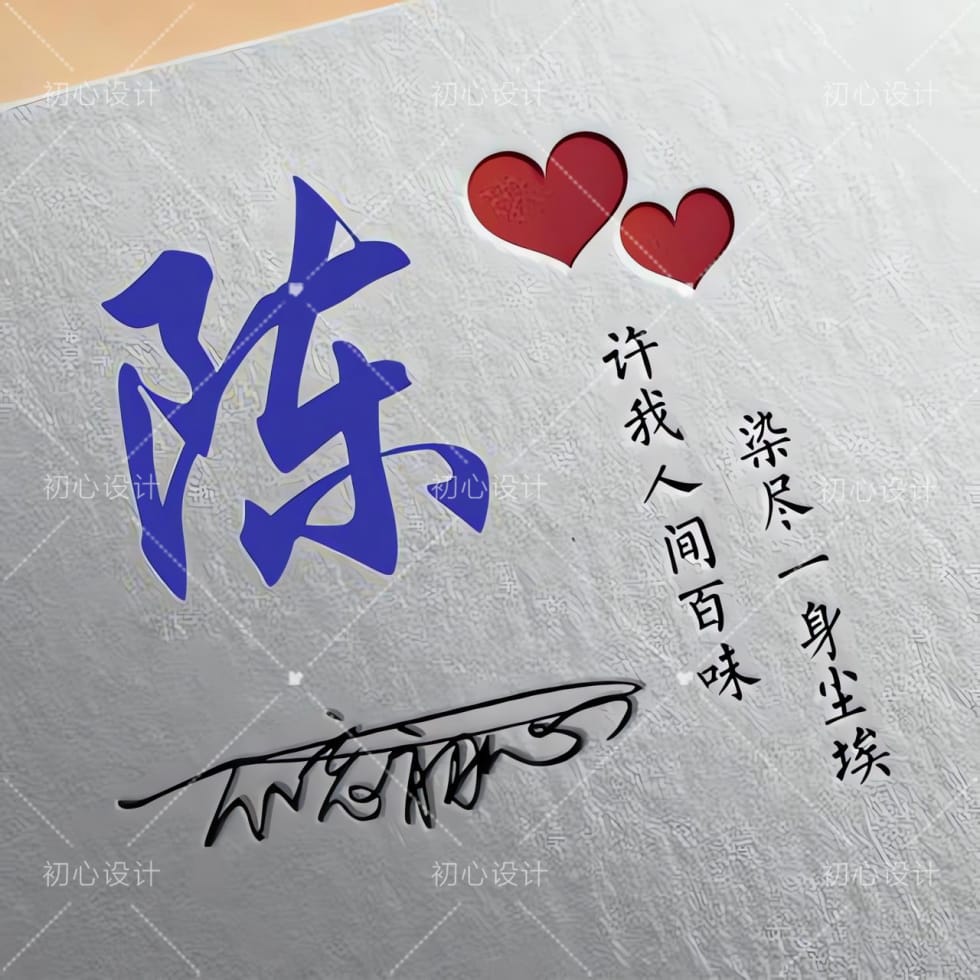 初心设计 初心设计 初心设计
陈
许我人间百味
染尽一身尘埃
初心设计 初心设计 初心设计
初心设计 初心设计 初心设计